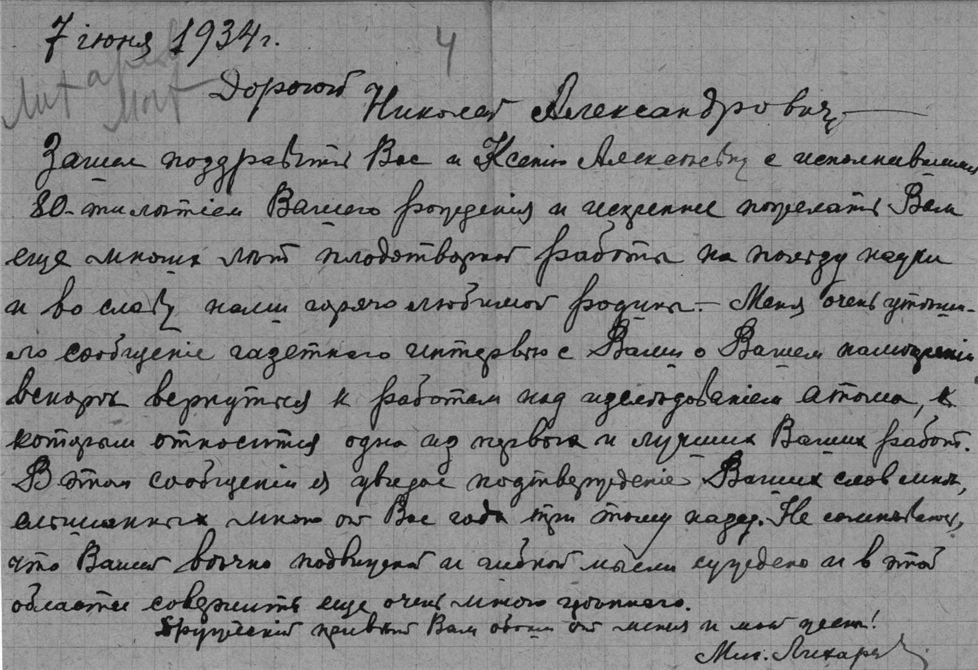 7 іюня 1934 г.
4
Дорогой
Николай Александрович,
Зашел поздравить Вас и Ксенію Алексѣевну с исполнившимся
80-тилѣтіем Вашего рождения и искренне пожелать Вам
еще многих лѣт плодотворной работы на пользу науки
и во славу нашей горячо любимой родины. — Меня очень утѣши-
ло сообщеніе газетного интервью с Вами о Вашем намѣреніи
вскорѣ вернуться к работам над изслѣдованіем атома, к
которым относится одна из первых и лучших Ваших работ.
В этом сообщеніи я увидел подтвержденіе Ваших слов мнѣ,
слышанных мною от Вас года три тому назад. Не сомнѣваюсь,
что Вашей вѣчно подвижной и гибкой мысли суждено и в этой
области совершить еще очень много цѣнного.
Дружескій привѣт Вам обоим от меня и моей жены!
Мих. Лихарев